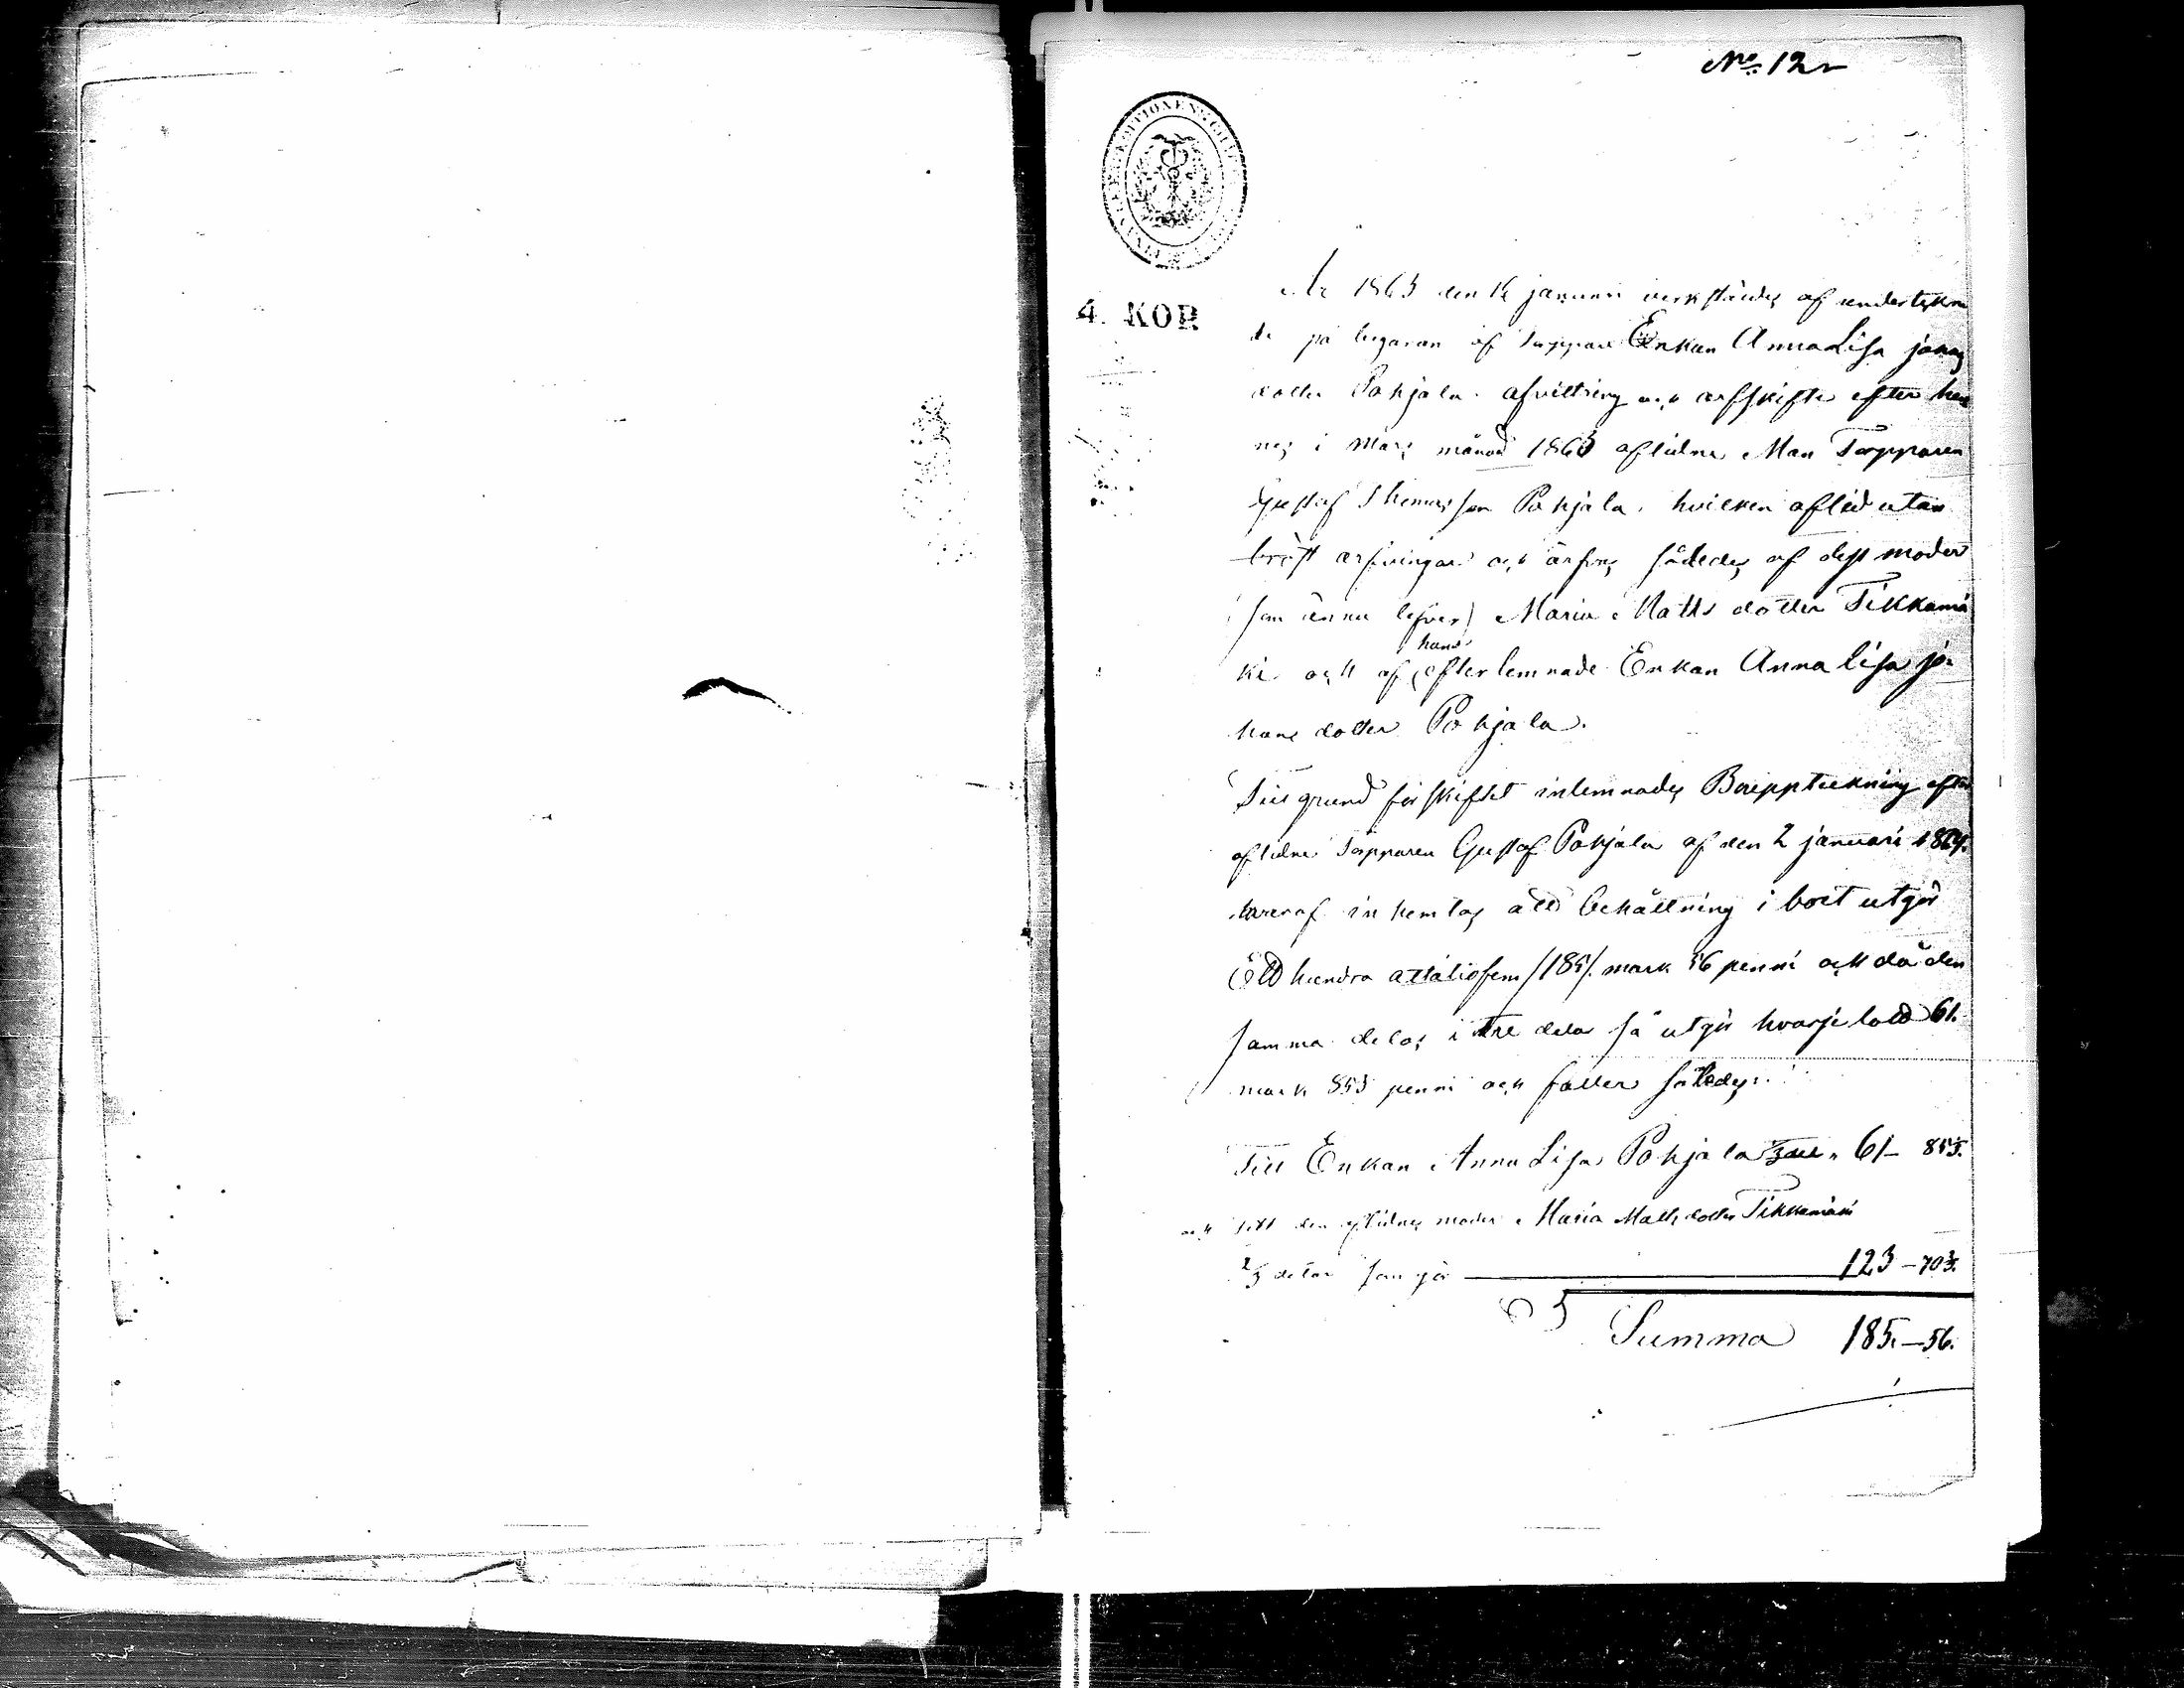 No 12
4. KOP.
År 1865 den 12 januari verkstäldes af underteckna
de på begäran af Torppare Enkan Anna Lisa johans
dotter Pohjala afvittring och arfskifte efter hen
nes i Mars månad 1863 aflidne Man Torpparen
Gustaf Thomasson Pohjala, hvilken afled utan
bröst arfvingar och ärfves således af dess moder
(som ännu lefver) Maria Matts dotter Tikkamä
hans
ki och af efterlemnade Enkan Anna Lisa jo
hans dotter Pohjala.
Till grund för skiftet inlemnades Bouppteckning efter
aflidne Torpparen Gustaf Pohjala af den 2 januari 1864.
hvaraf inhemtas att behållning i boet utgör
Ett hundra åttatiofem /185/. mark 56 penni och då den
samma delas i tre delar så utgör hvarje lott 61.
mark 85⅓ penni och faller således:
Till Enkan Anna Lisa Pohjala 61– 85⅓.
och till den aflidnes moder Maria Matts dotter Tikkamäki
⅔ delar som gör 123 – 70⅔.
Summa 185. – 56.